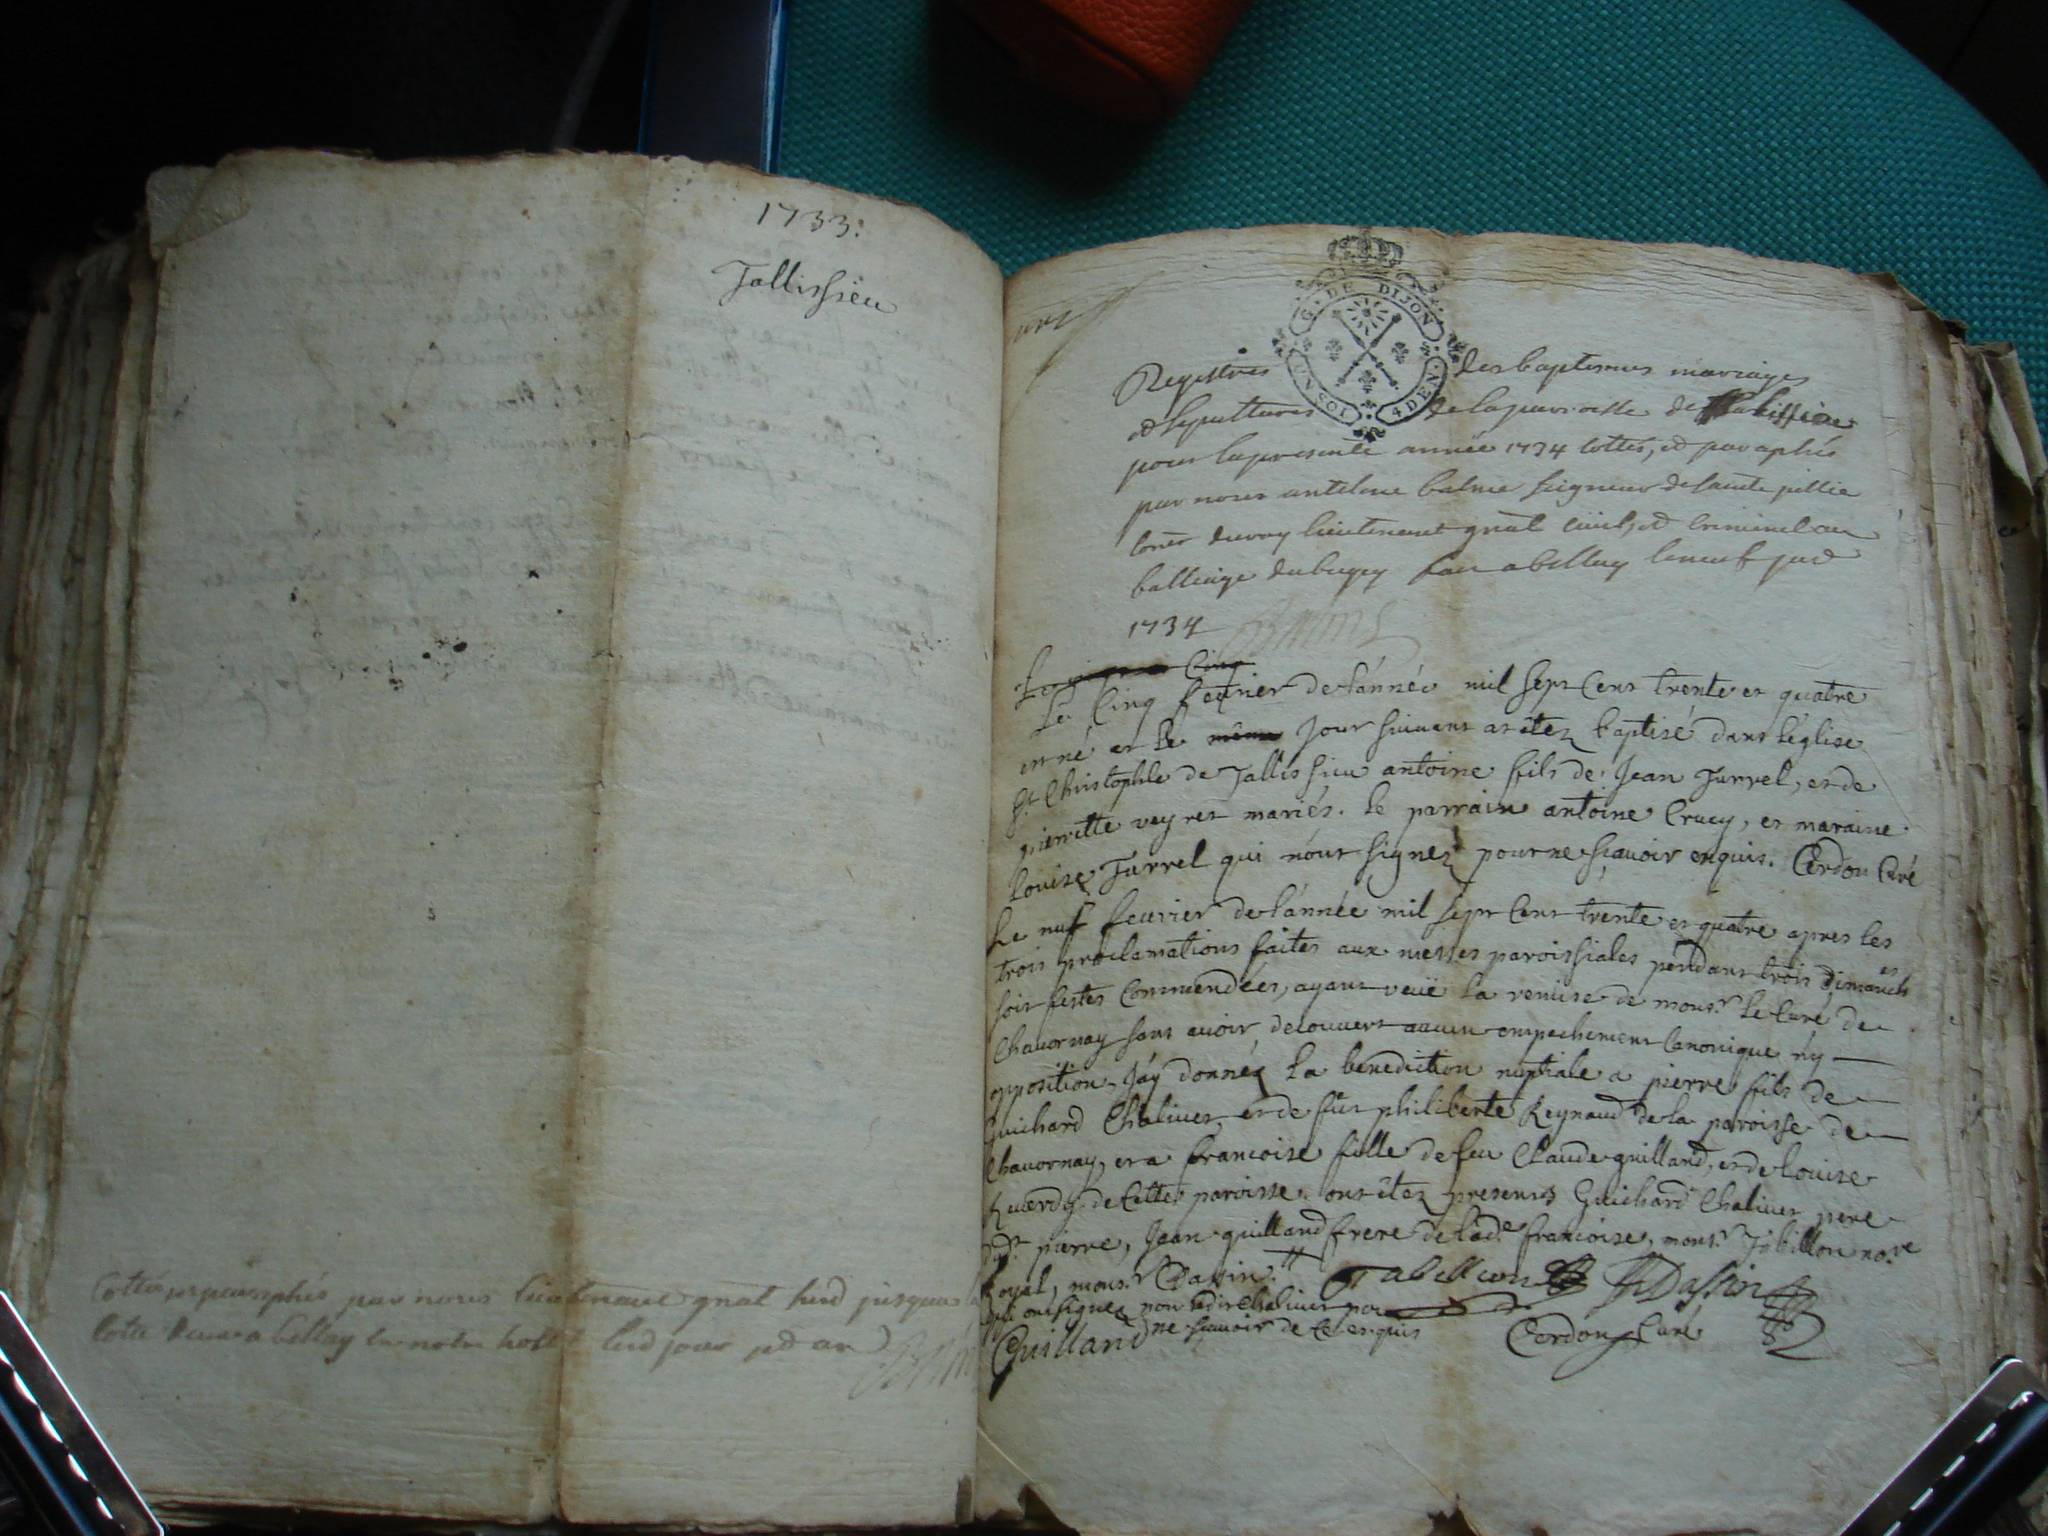 1733:
Tallissieu
Cottés et paraphés par nous lieutenant gnãl susd jusques
cotte deux a belley en notre hostel lesd jour et an
Balme
une
G. DE DIJON
UN SOL 4 DEN.
Registres des baptesmes mariages
et sepultures de la parroisse de Tallissieu
pour la presente année 1734 cottés, et paraphés
par nous antelme balme seigneur de sainte jullie
coner du roy lieutenant gnãl civil, et criminel au
balliage du bugey fait a belley le neuf
1734 Balme
Le cinq
Le Cinq feuvrier de l'année mil sept Cent trente et quatre
est né et le même Jour suivant at êtez baptisé dans l'église
St. Christophle de Tallissieu antoine fils de Jean Turrel, et de
pierrette veyret mariés. le parrain antoine Crucy, et maraine
Louise Turrel qui n'ont signez pour ne sçavoir enquis. Cerdon Curé
Le nuf feuvrier de l'année mil sept Cent trente et quatre apres les
trois proclamations faites aux messes paroissiales pendant trois Dimanches
soit festes Commendées, ayant veuë la remise de monsr. le Curé de
Chavornay sans avoir decouvert aucun empechement Canonique ny
opposition, J'áy donnéz la benediction nuptiale a pierre fils de
Guichard Chaliver, et de philiberte Reynaud de la paroisse de
Chavornay, et a francoise fille de feu Claude guilland, et de Louise
de Cette paroisse. ont êtez presents Guichard Chaliver pere
dudt. pierre, Jean guilland frere de lade francoise, monsr. Tabillon nore
Royal, monsr. Dassin.
qui ont signez non ledit Chaliver pour
ne sçavoir de ce enquis
Tabellion Dassin
Guilland Cerdon Curé